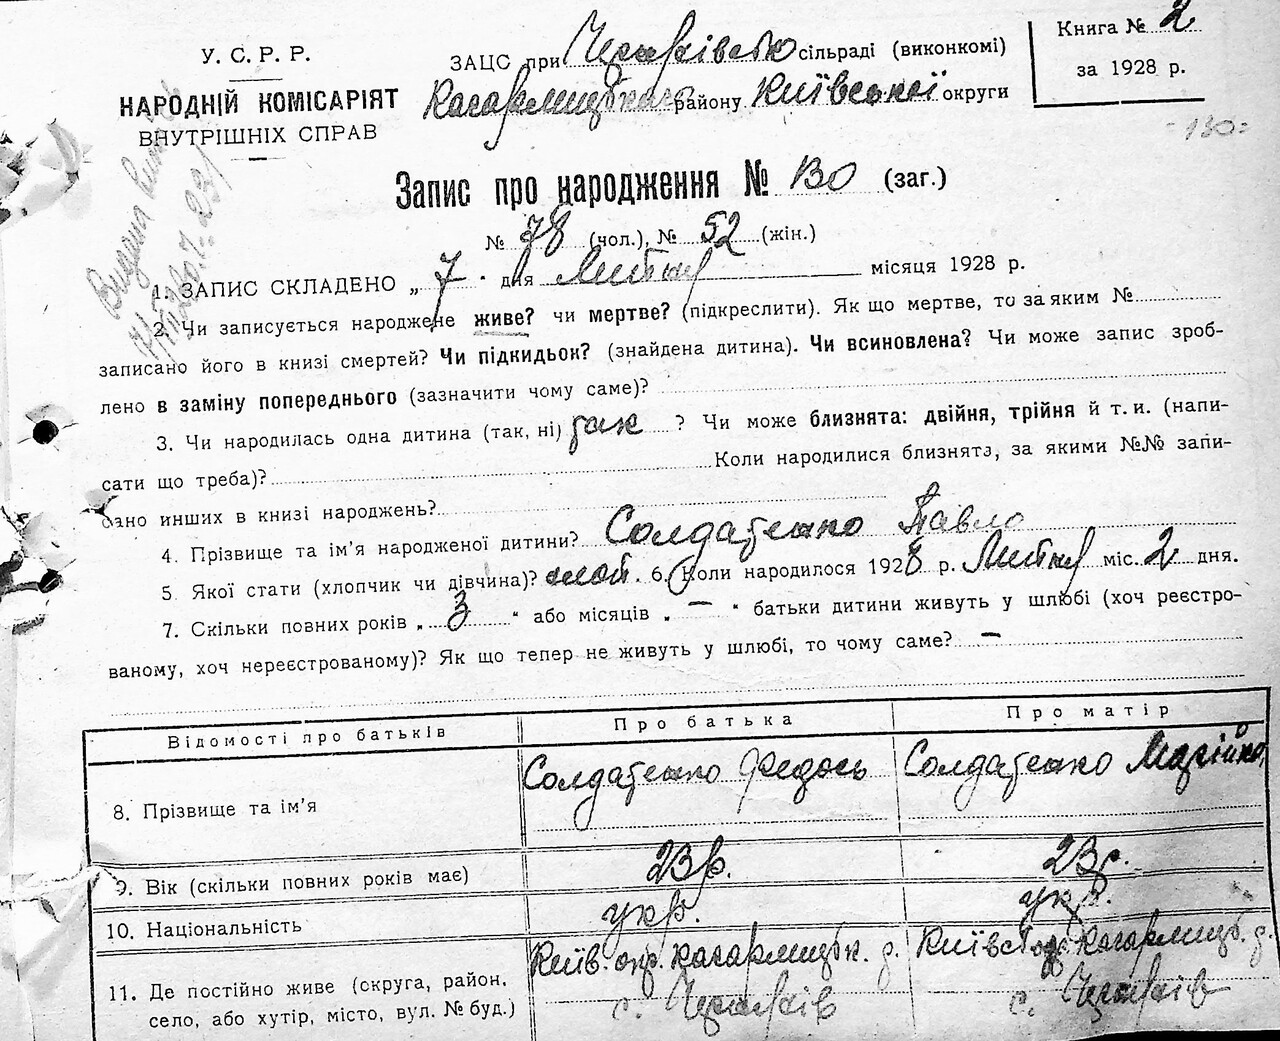 У. С. Р. Р.
НАРОДНІЙ КОМІСАРІЯТ
ВНУТРІШНІХ СПРАВ
ЗАЦС при сільраді (виконкомі)
Кагарлицького району Київської округи
Книга № 2
за 1928 р.
-130=
Видана
Запис про народження № 130 (заг.)
№ 78 (чол.), № 52 (жін.)
1. ЗАПИС СКЛАДЕНО „ 7 " дня Лютня місяця 1928 р.
2. Чи записується народжене живе? чи мертве? (підкреслити). Як що мертве, то за яким №
записано його в книзі смертей? Чи підкидьок? (знайдена дитина). Чи всиновлена? Чи може запис зроб-
лено в заміну попереднього (зазначити чому саме)?
3. Чи народилась одна дитина (так, ні) так ? Чи може близнята: двійня, трійня й т. и. (напи-
сати що треба)? Коли народилися близнята, за якими №№ запи-
сано инших в книзі народжень?
4. Прізвище та ім’я народженої дитини? Солдатенко Павло
5. Якої стати (хлопчик чи дівчина)? 6. Коли народилося 1928 р. Лютня міс. 2 дня.
7. Скільки повних років „ 3 " або місяців „ — " батьки дитини живуть у шлюбі (хоч реєстро-
ваному, хоч нереєстрованому)? Як що тепер не живуть у шлюбі, то чому саме? —
Відомості про батьків Про батька Про матір
8. Прізвище та ім’я Солдатенко Федось Солдатенко Марійка
9. Вік (скільки повних років має) 23 р. 23 р.
10. Національність укр. укр.
11. Де постійно живе (округа, район, Київ. окр. Кагарлицьк. р. Кагарлицьк. р.
село, або хутір, місто, вул. № буд.) с. с.